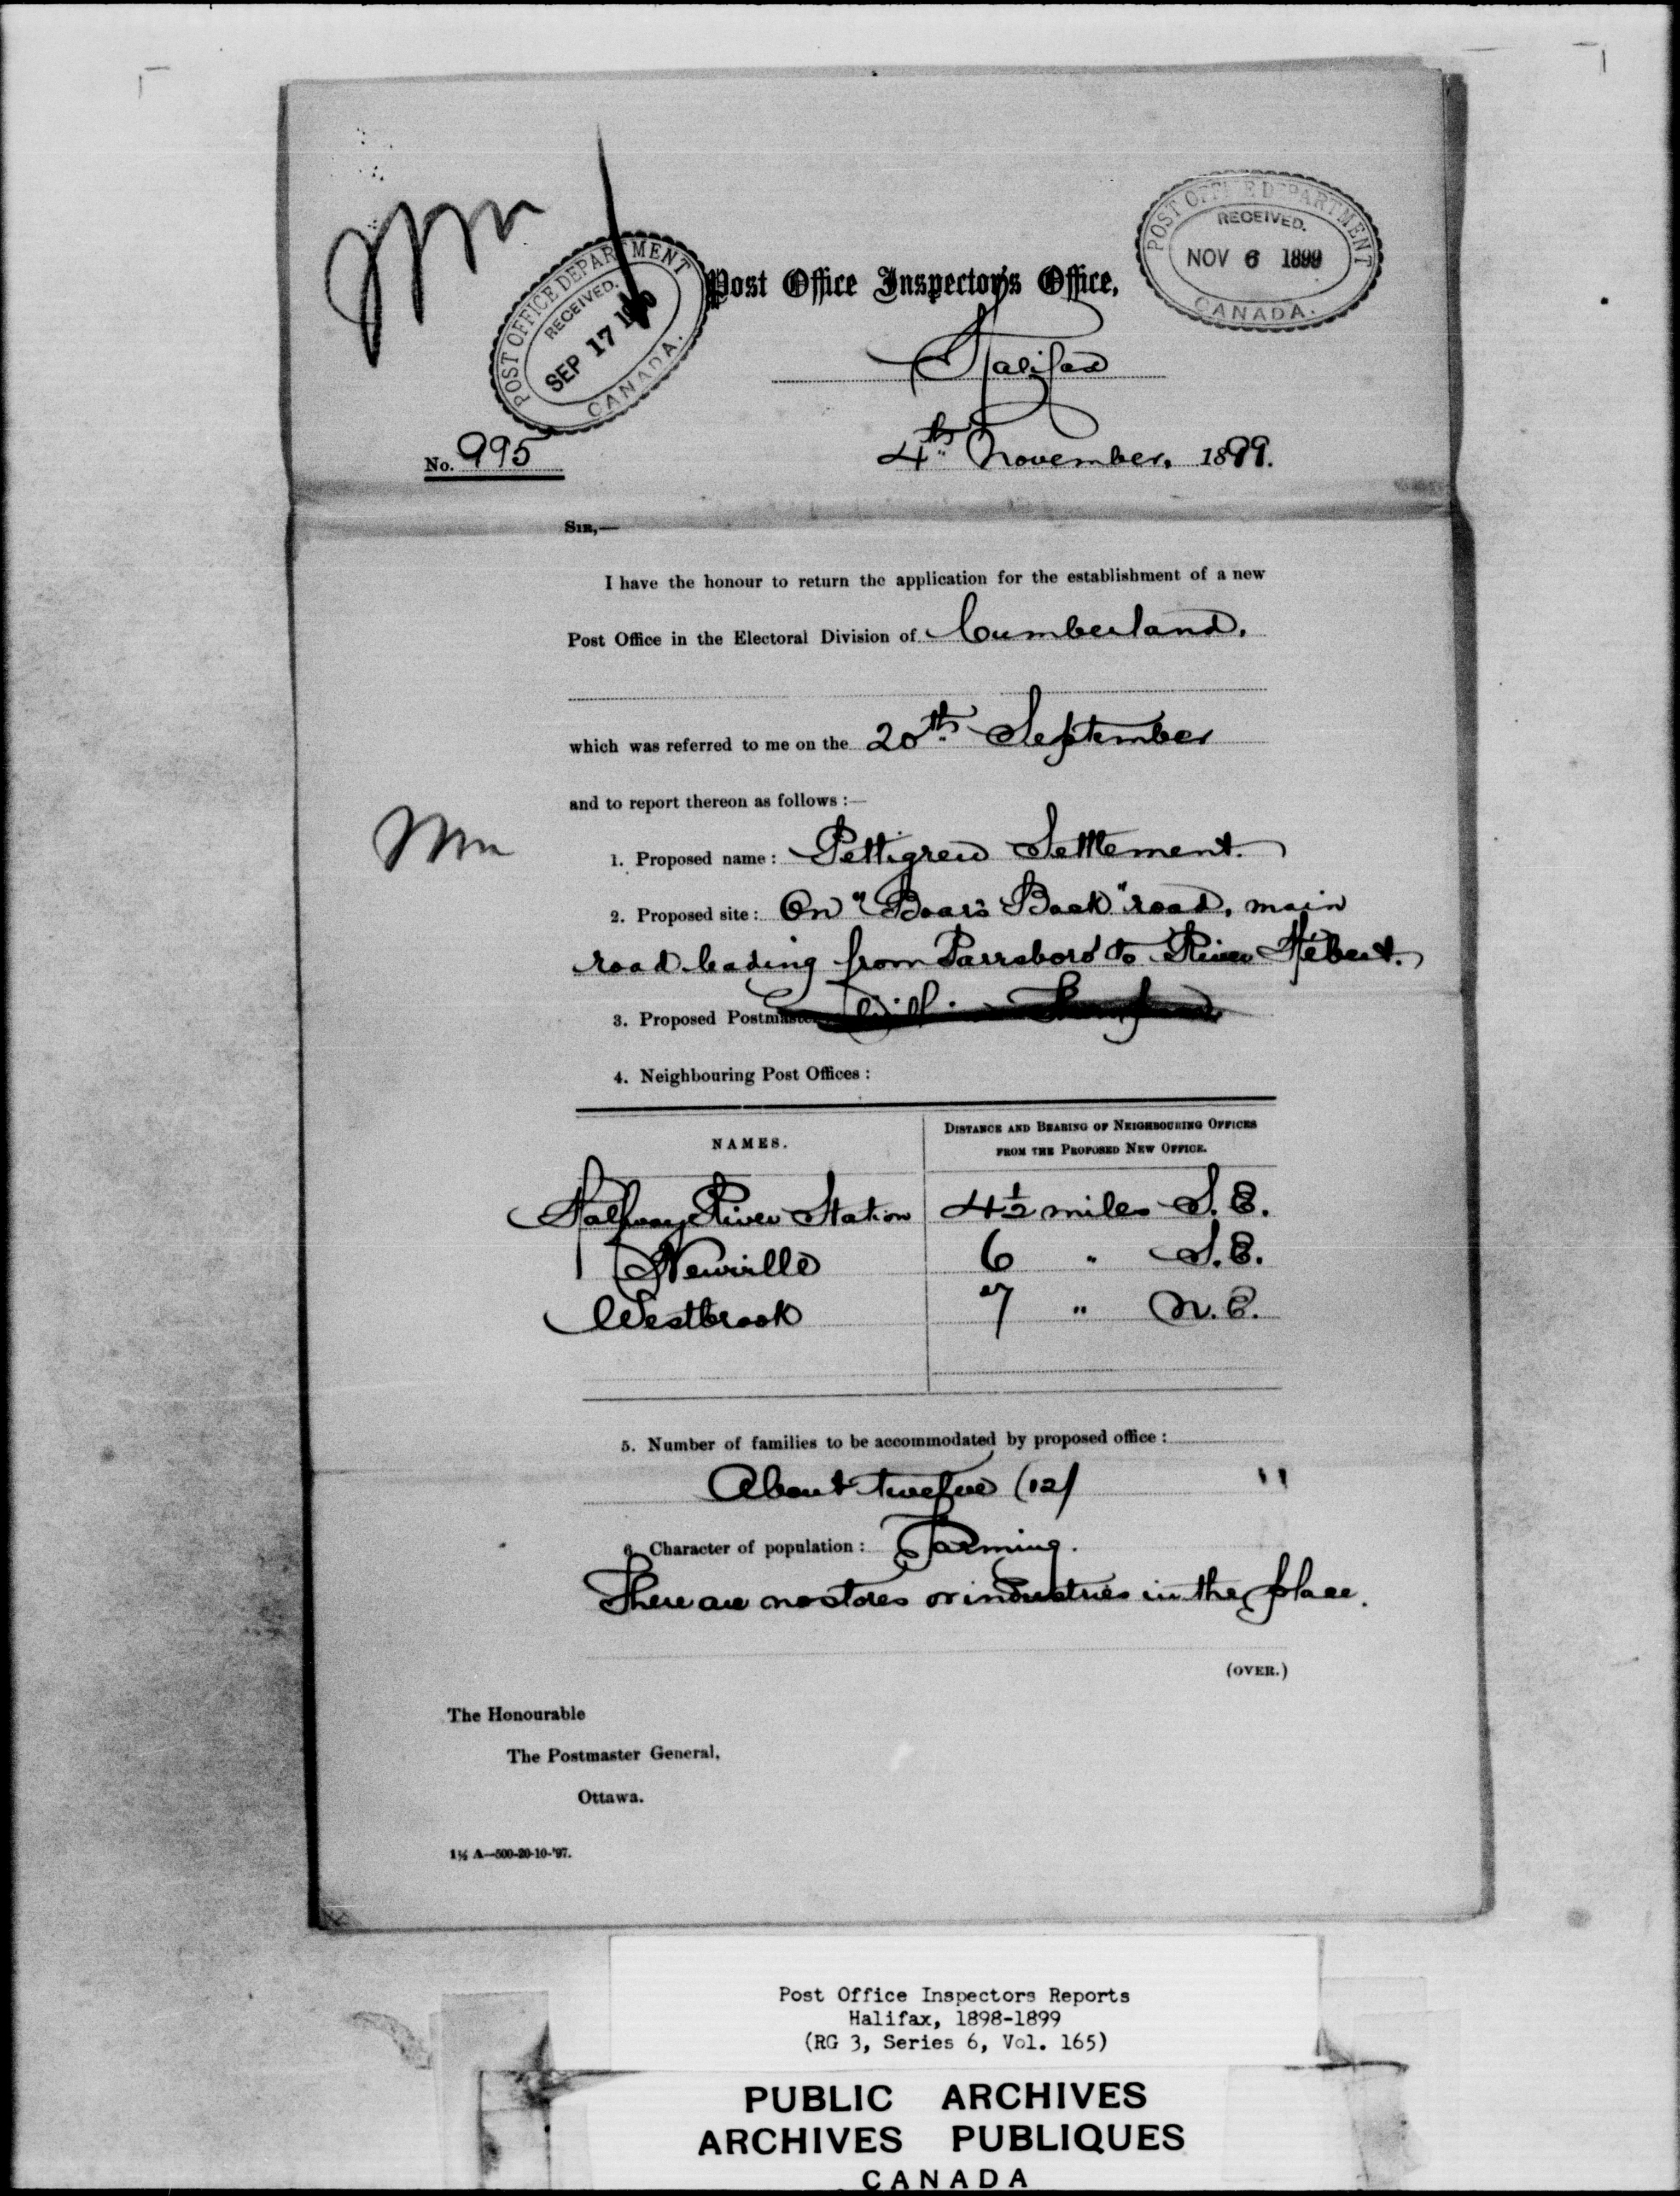 POST OFFICE DEPARTMENT
RECEIVED.
SEP 17
CANADA.
POST OFFICE DEPARTMENT
RECEIVED.
NOV 6 1899
CANADA.
Post Office Inspector's Office,
Halifax
No. 995
4th November, 1899.
SIR,—
I have the honour to return the application for the establishment of a new
Post Office in the Electoral Division of Cumberland.
which was referred to me on the 20th September
and to report thereon as follows :—
1. Proposed name: Pettigrew Settlement.
2. Proposed site: On "Boar's Back" road, main
road leading from Parrsboro' to River Hébert.
3. Proposed Postmaster
4. Neighbouring Post Offices :
NAMES.
DISTANCE AND BEARING OF NEIGHBOURING OFFICES
FROM THE PROPOSED NEW OFFICE.
Halfway River Station 4½ miles S.E.
Newville 6 " S.E.
Westbrook 7 " N.E.
5. Number of families to be accommodated by proposed office :
About twelve (12) "
6. Character of population : Farming.
There are no stores or industries in the place.
(OVER.)
The Honourable
The Postmaster General,
Ottawa.
1½ A—500-20-10-'97.
Post Office Inspectors Reports
Halifax, 1898-1899
(RG 3, Series 6, Vol. 165)
PUBLIC ARCHIVES
ARCHIVES PUBLIQUES
CANADA